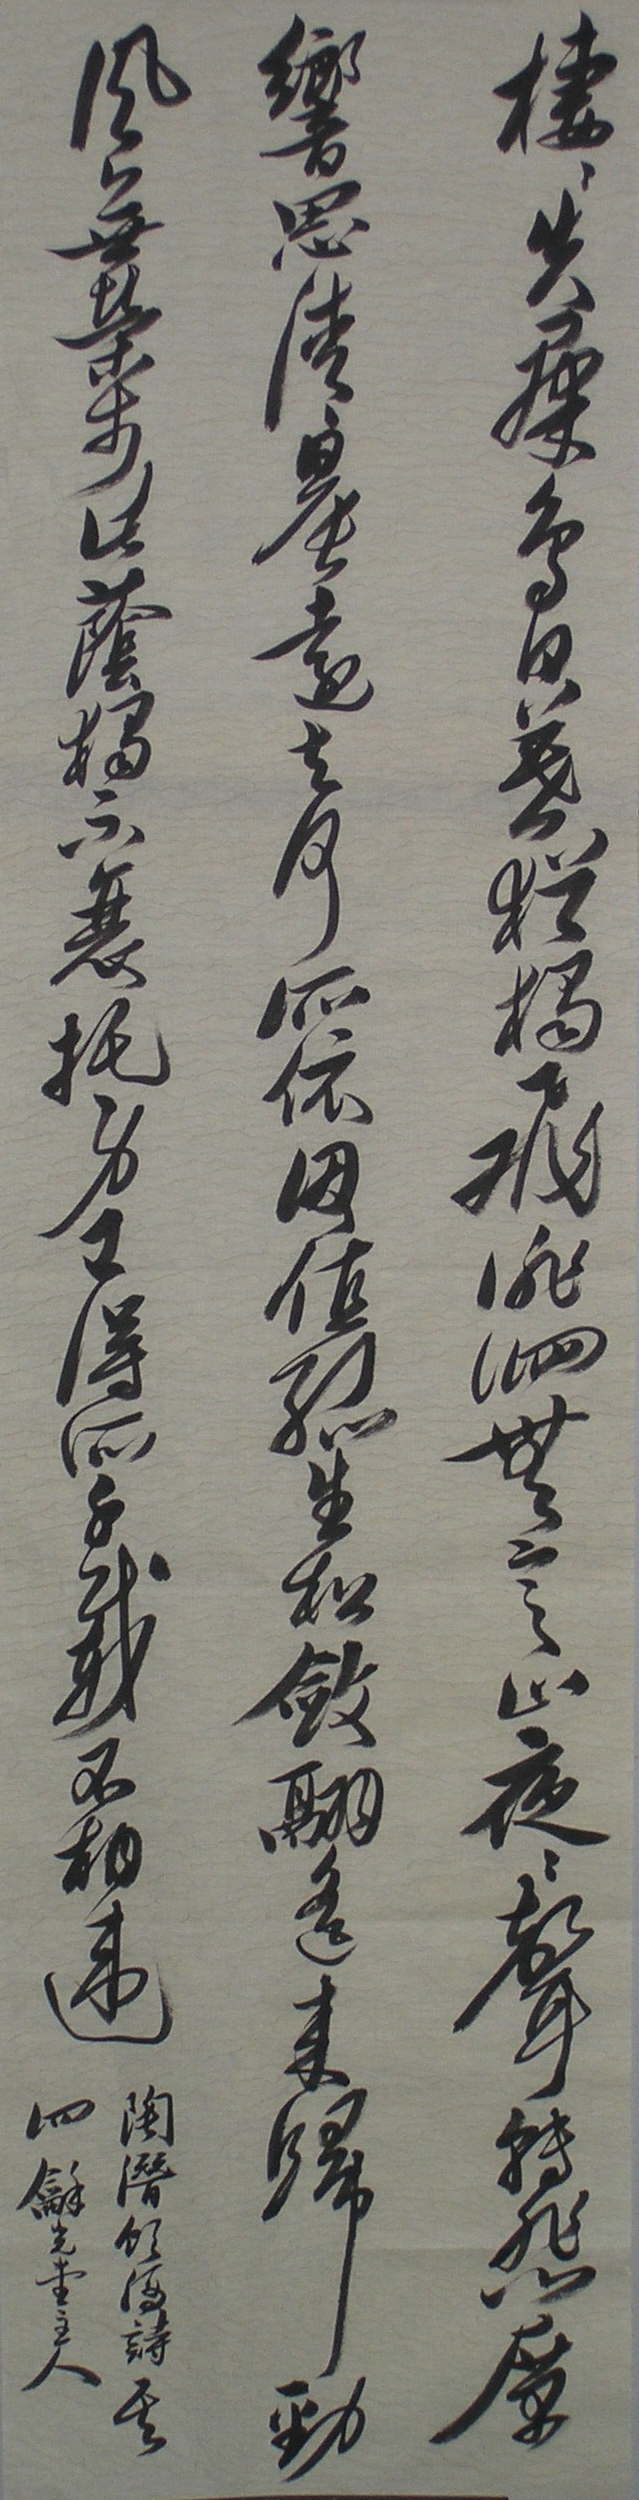 棲々失羣鳥日暮猶獨飛徘徊無定止夜々聲轉悲厲
響思清晨遠去何所依因值孤生松斂翮遙來歸勁
風無榮木此蔭獨不衰托身已得所千載不相違
陶潛飲酒詩其
四 龢光堂主人